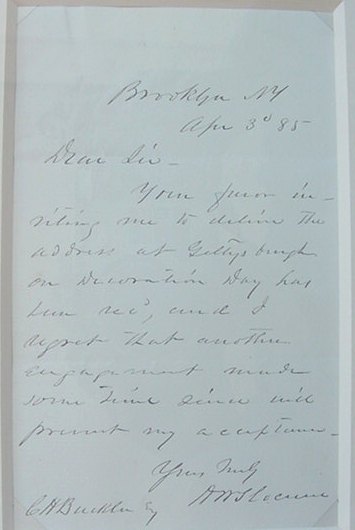 Brooklyn NY
Apr 3d 85
Dear Sir -
Your favor in-
viting me to deliver the
address at Gettysburgh
on Decoration Day has
been rec'd, and I
regret that another
engagement made
some time since will
prevent my acceptance -
Yours truly
A W Slocum
C H Buehler Esq